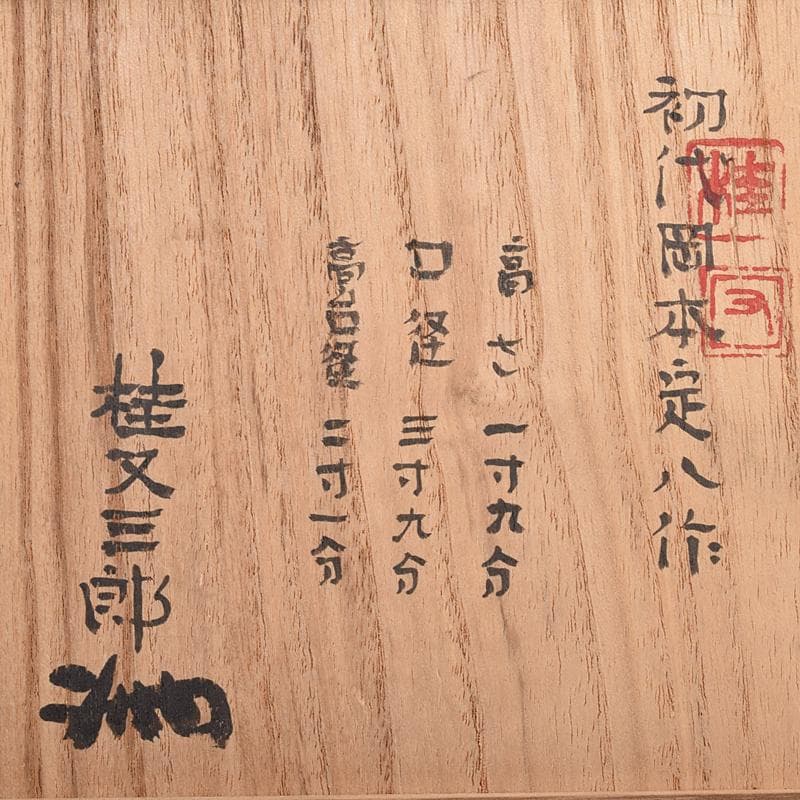 初代岡本定八作
高さ 一寸九分
口径 三寸九分
高台径 二寸一分
桂又三郎